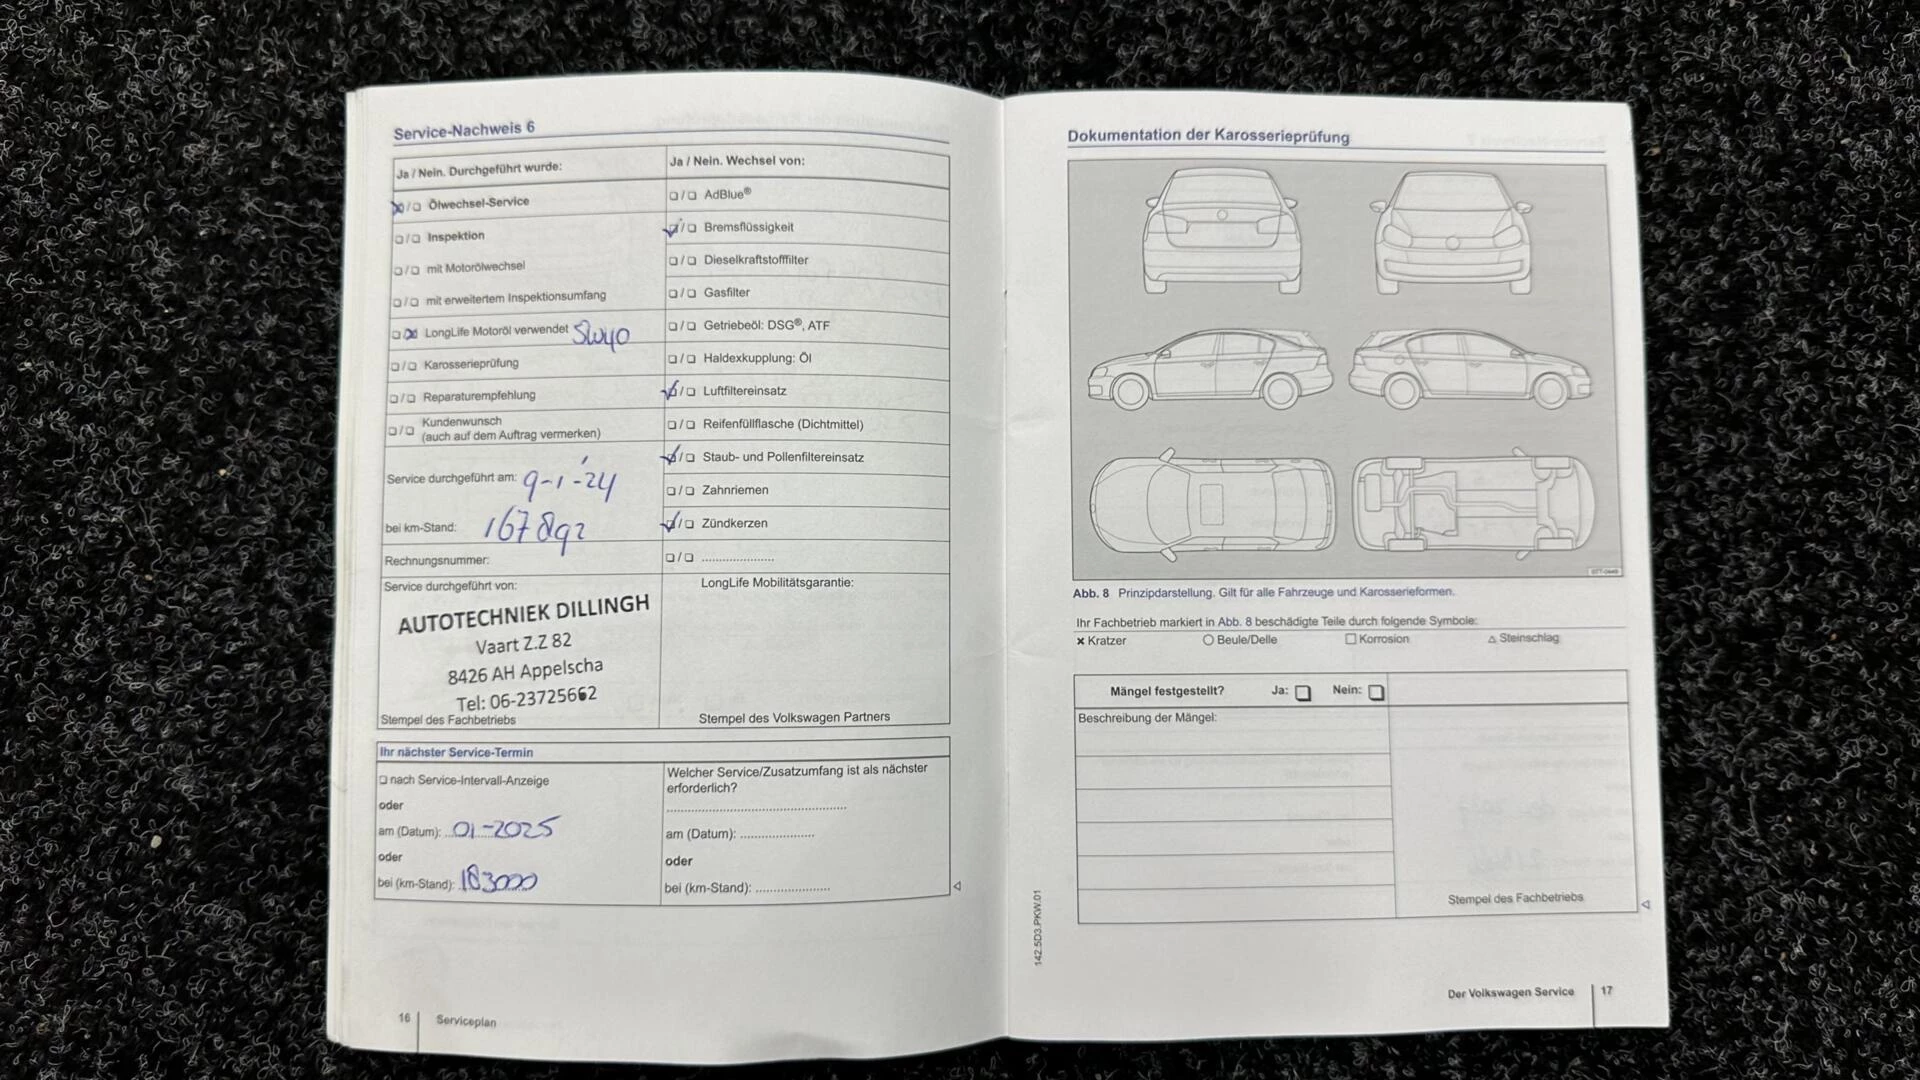 Service-Nachweis 6
Ja / Nein. Durchgeführt wurde:
Ölwechsel-Service
Inspektion
mit Motorölwechsel
mit erweitertem Inspektionsumfang
LongLife Motoröl verwendet 5W40
Karosserieprüfung
Reparaturempfehlung
Kundenwunsch
(auch auf dem Auftrag vermerken)
Service durchgeführt am: 9-1-'24
bei km-Stand: 167892
Rechnungsnummer:
Service durchgeführt von:
AUTOTECHNIEK DILLINGH
Vaart Z.Z 82
8426 AH Appelscha
Tel: 06-23725662
Stempel des Fachbetriebs
Ja / Nein. Wechsel von:
AdBlue®
Bremsflüssigkeit
Dieselkraftstofffilter
Gasfilter
Getriebeöl: DSG®, ATF
Haldexkupplung: Öl
Luftfiltereinsatz
Reifenfüllflasche (Dichtmittel)
Staub- und Pollenfiltereinsatz
Zahnriemen
Zündkerzen
LongLife Mobilitätsgarantie:
Stempel des Volkswagen Partners
Ihr nächster Service-Termin
nach Service-Intervall-Anzeige
oder
am (Datum): 01-2025
oder
bei (km-Stand): 183000
Welcher Service/Zusatzumfang ist als nächster
erforderlich?
am (Datum): ......................
oder
bei (km-Stand): ......................
16 Serviceplan
Dokumentation der Karosserieprüfung
Abb. 8 Prinzipdarstellung. Gilt für alle Fahrzeuge und Karosserieformen.
Ihr Fachbetrieb markiert in Abb. 8 beschädigte Teile durch folgende Symbole:
Kratzer Beule/Delle Korrosion Steinschlag
Mängel festgestellt? Ja: Nein:
Beschreibung der Mängel:
Stempel des Fachbetriebs
142.5D3.PKW.01
Der Volkswagen Service 17